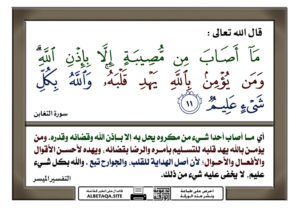 قال الله تعالى :
مَآ أَصَابَ مِن مُّصِيبَةٍ إِلَّا بِإِذْنِ ٱللَّهِۗ
وَمَن يُؤْمِنۢ بِٱللَّهِ يَهْدِ قَلْبَهُۥۚ وَٱللَّهُ بِكُلِّ
شَىْءٍ عَلِيمٌ ١١
سورة التغابن
أي ما أصاب أحدا شيء من مكروه يحل به إلا بإذن الله وقضائه وقدره. ومن
يؤمن بالله يهد قلبه للتسليم بأمره والرضا بقضائه، ويهده لأحسن الأقوال
والأفعال والأحوال؛ لأن أصل الهداية للقلب، والجوارح تبع. والله بكل شيء
عليم، لا يخفى عليه شيء من ذلك.
التفسير الميسر
ALBETAQA.SITE
احرص على طباعة
ونشر هذه الورقة